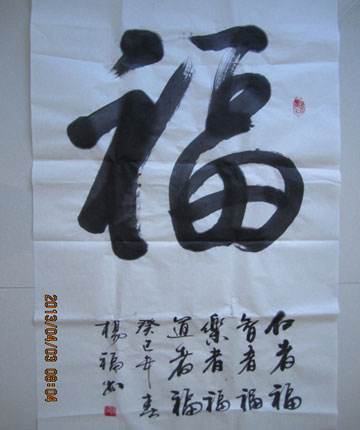 福
仁者福
智者福
樂者福
道者福
癸巳年春
楊福
2013/04/03 09:04